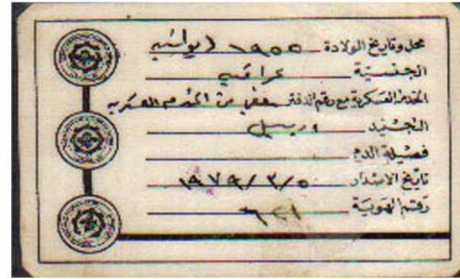 محل وتاريخ الولادة ١٩٥٥ ديوانيه
الجنسية عراقي
الخدمة العسكرية مع رقم الدفتر من الخدمة العسكريه
التجنيد
فصيلة الدم
تاريخ الاصدار ١٩٧٩/٣/٥
رقم الهوية ٦٢١